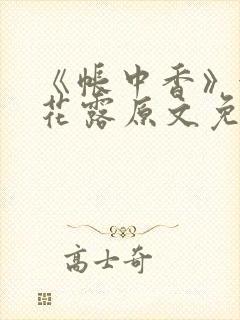 《帐中香》
花露原文免
高士奇